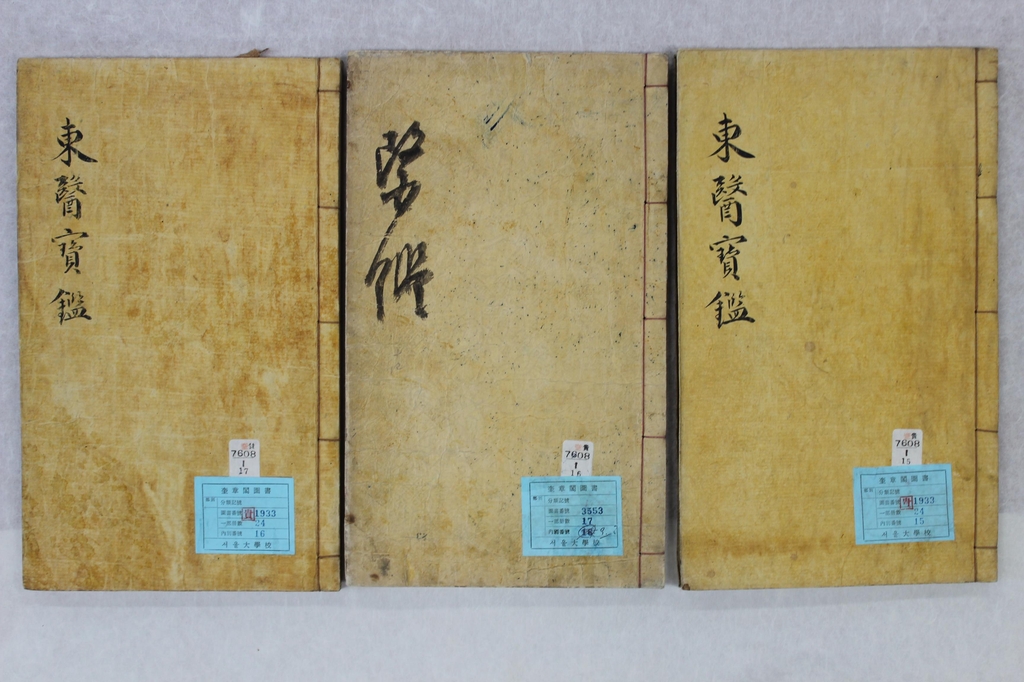 東醫寶鑑
7608
1
17
奎章閣圖書
分類記號
圖書番號 1933
一部冊數 24
內容番號 16
서울大學校
7608
1
16
奎章閣圖書
圖書番號 3553
一部冊數 17
서울大學校
東醫寶鑑
貴
7608
1
15
奎章閣圖書
分類記號
圖書番號 1933
一部冊數 24
內容番號 15
서울大學校